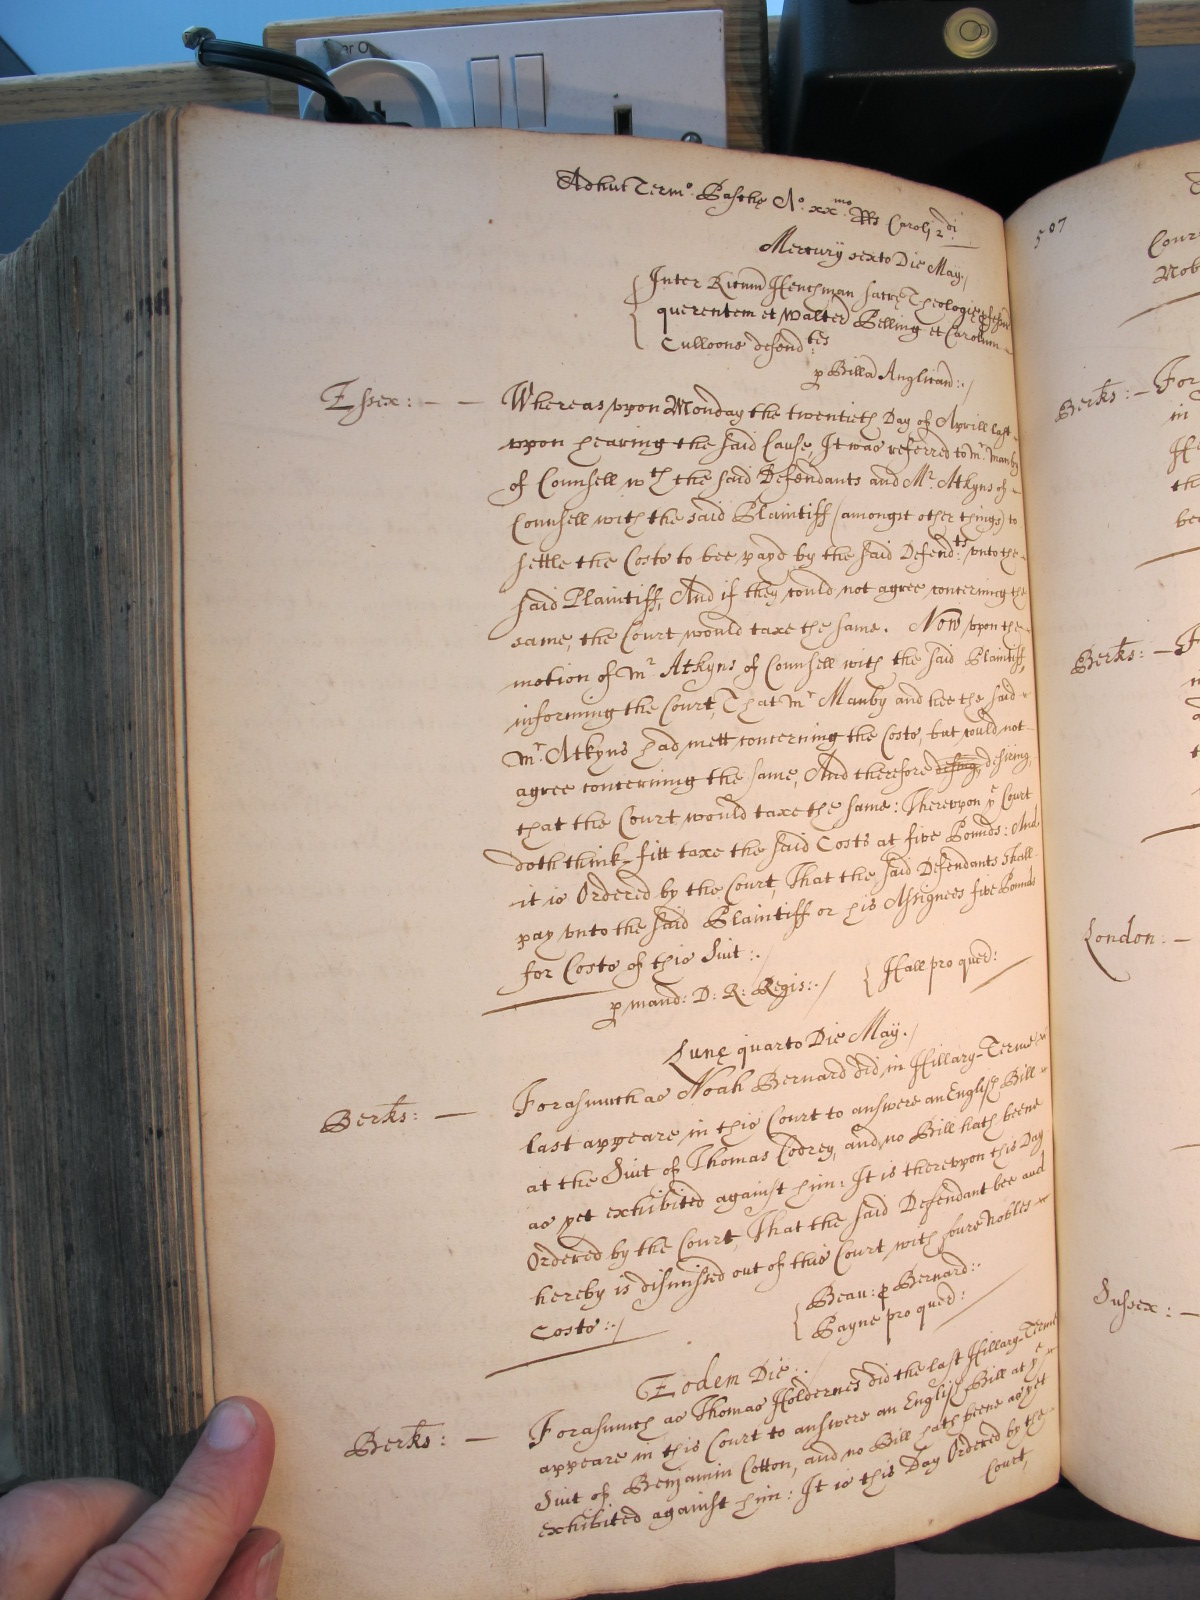 Adhuc Termo. Pasche Ao. xxmo. Rs Caroli 2di.
Mercurij sexto Die May./
Inter Ricum Henchman sacre Theologie
querentem et Walter Belling et Carolum
Culloone defendtes.
p Billa Anglican:./
Essex: — — Whereas vpon Monday the twentieth Day of Aprill last
vpon hearing the said Cause, It was referred to Mr. Manby
of Counsell wth the said Defendants and Mr. Atkyns of
Counsell with the said Plaintiff (amongst other things) to
settle the Costs to bee payd by the said Defend:ts vnto the
said Plaintiff, And if they could not agree concerning the
same, the Court would taxe the same. Now vpon the
motion of Mr Atkyns of Counsell with the said Plaintiff,
informing the Court, That Mr Manby and hee the said
Mr. Atkyns had mett concerning the Costs, but could not
agree concerning the same, And therefore desiring
that the Court would taxe the same: Therevpon ye Court
doth think fitt taxe the said Costs at five Pounds: And
it is Ordered by the Court, That the said Defendants shall
pay vnto the said Plaintiff or his Assignees five Pounds
for Costs of this Suit:./
p mand: D: R: Regis:./ Hall pro quer:
Lune quarto Die May./
Berks: — Forasmuch as Noah Bernard did in Hillary-Terme
last appeare in this Court to answere an English Bill
at the Suit of Thomas Codrey, and no Bill hath beene
as yet exhibited against him: It is therevpon this Day
Ordered by the Court, That the said Defendant bee and
hereby is dismissed out of this Court with foure Nobles
Costs:./
Beau: p Bernard:.
Payne pro quer:
Eodem Die:./
Berks: — Forasmuch as Thomas Holdernes did the last Hillary-Terme
appeare in this Court to answere an English Bill at ye
Suit of Benjamin Cotton, and no Bill hath beene as yet
exhibited against him: It is this Day Ordered by the
Court,
507
Cour
Nob
Berks: — For
in
th
bee
Berks: —
London: —
Sussex: —